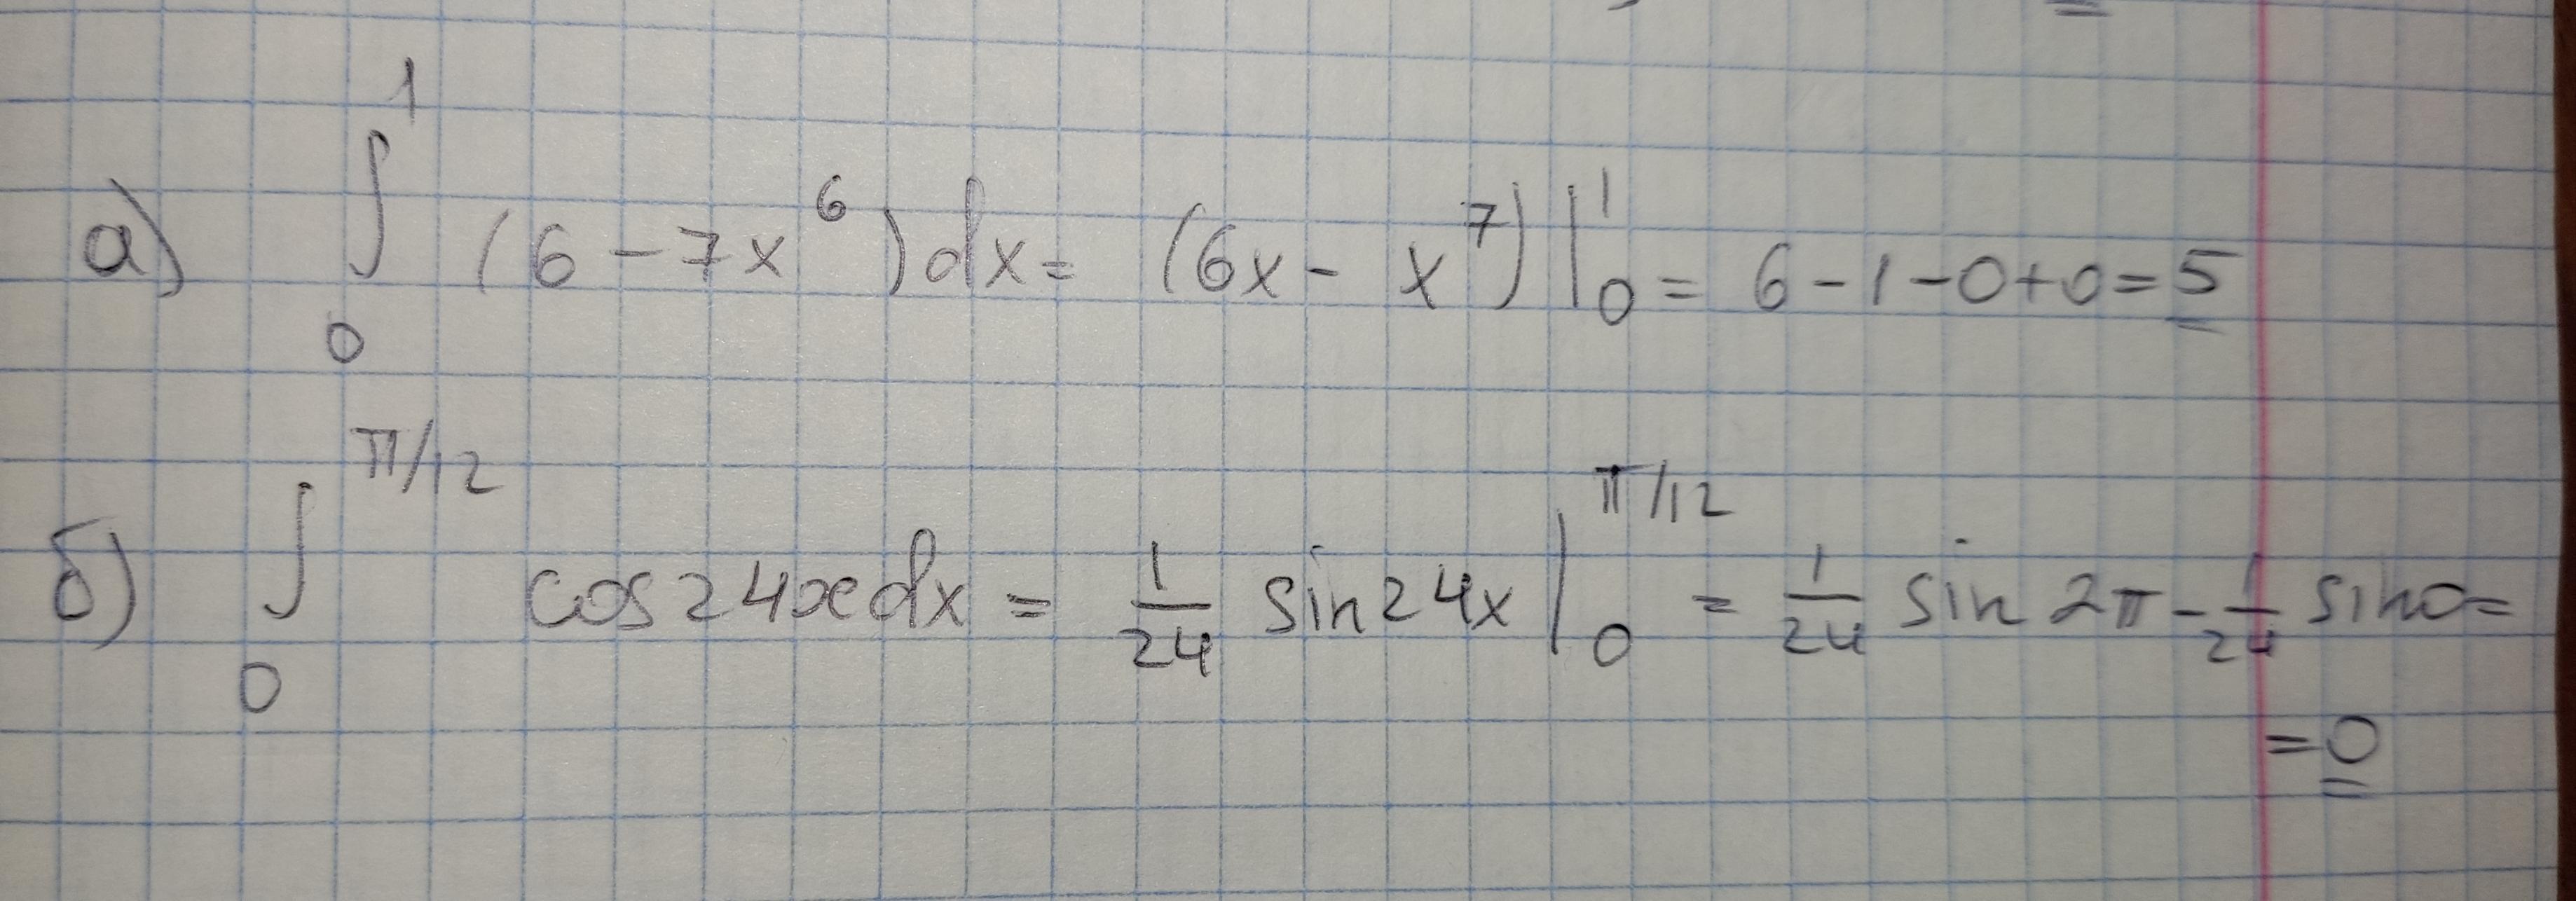 а) ∫₀¹ (6 - 7x⁶) dx = (6x - x⁷) |₀¹ = 6 - 1 - 0 + 0 = 5
б) ∫₀^(π/12) cos 24x dx = 1/24 sin 24x |₀^(π/12) = 1/24 sin 2π - 1/24 sin 0 =
= 0